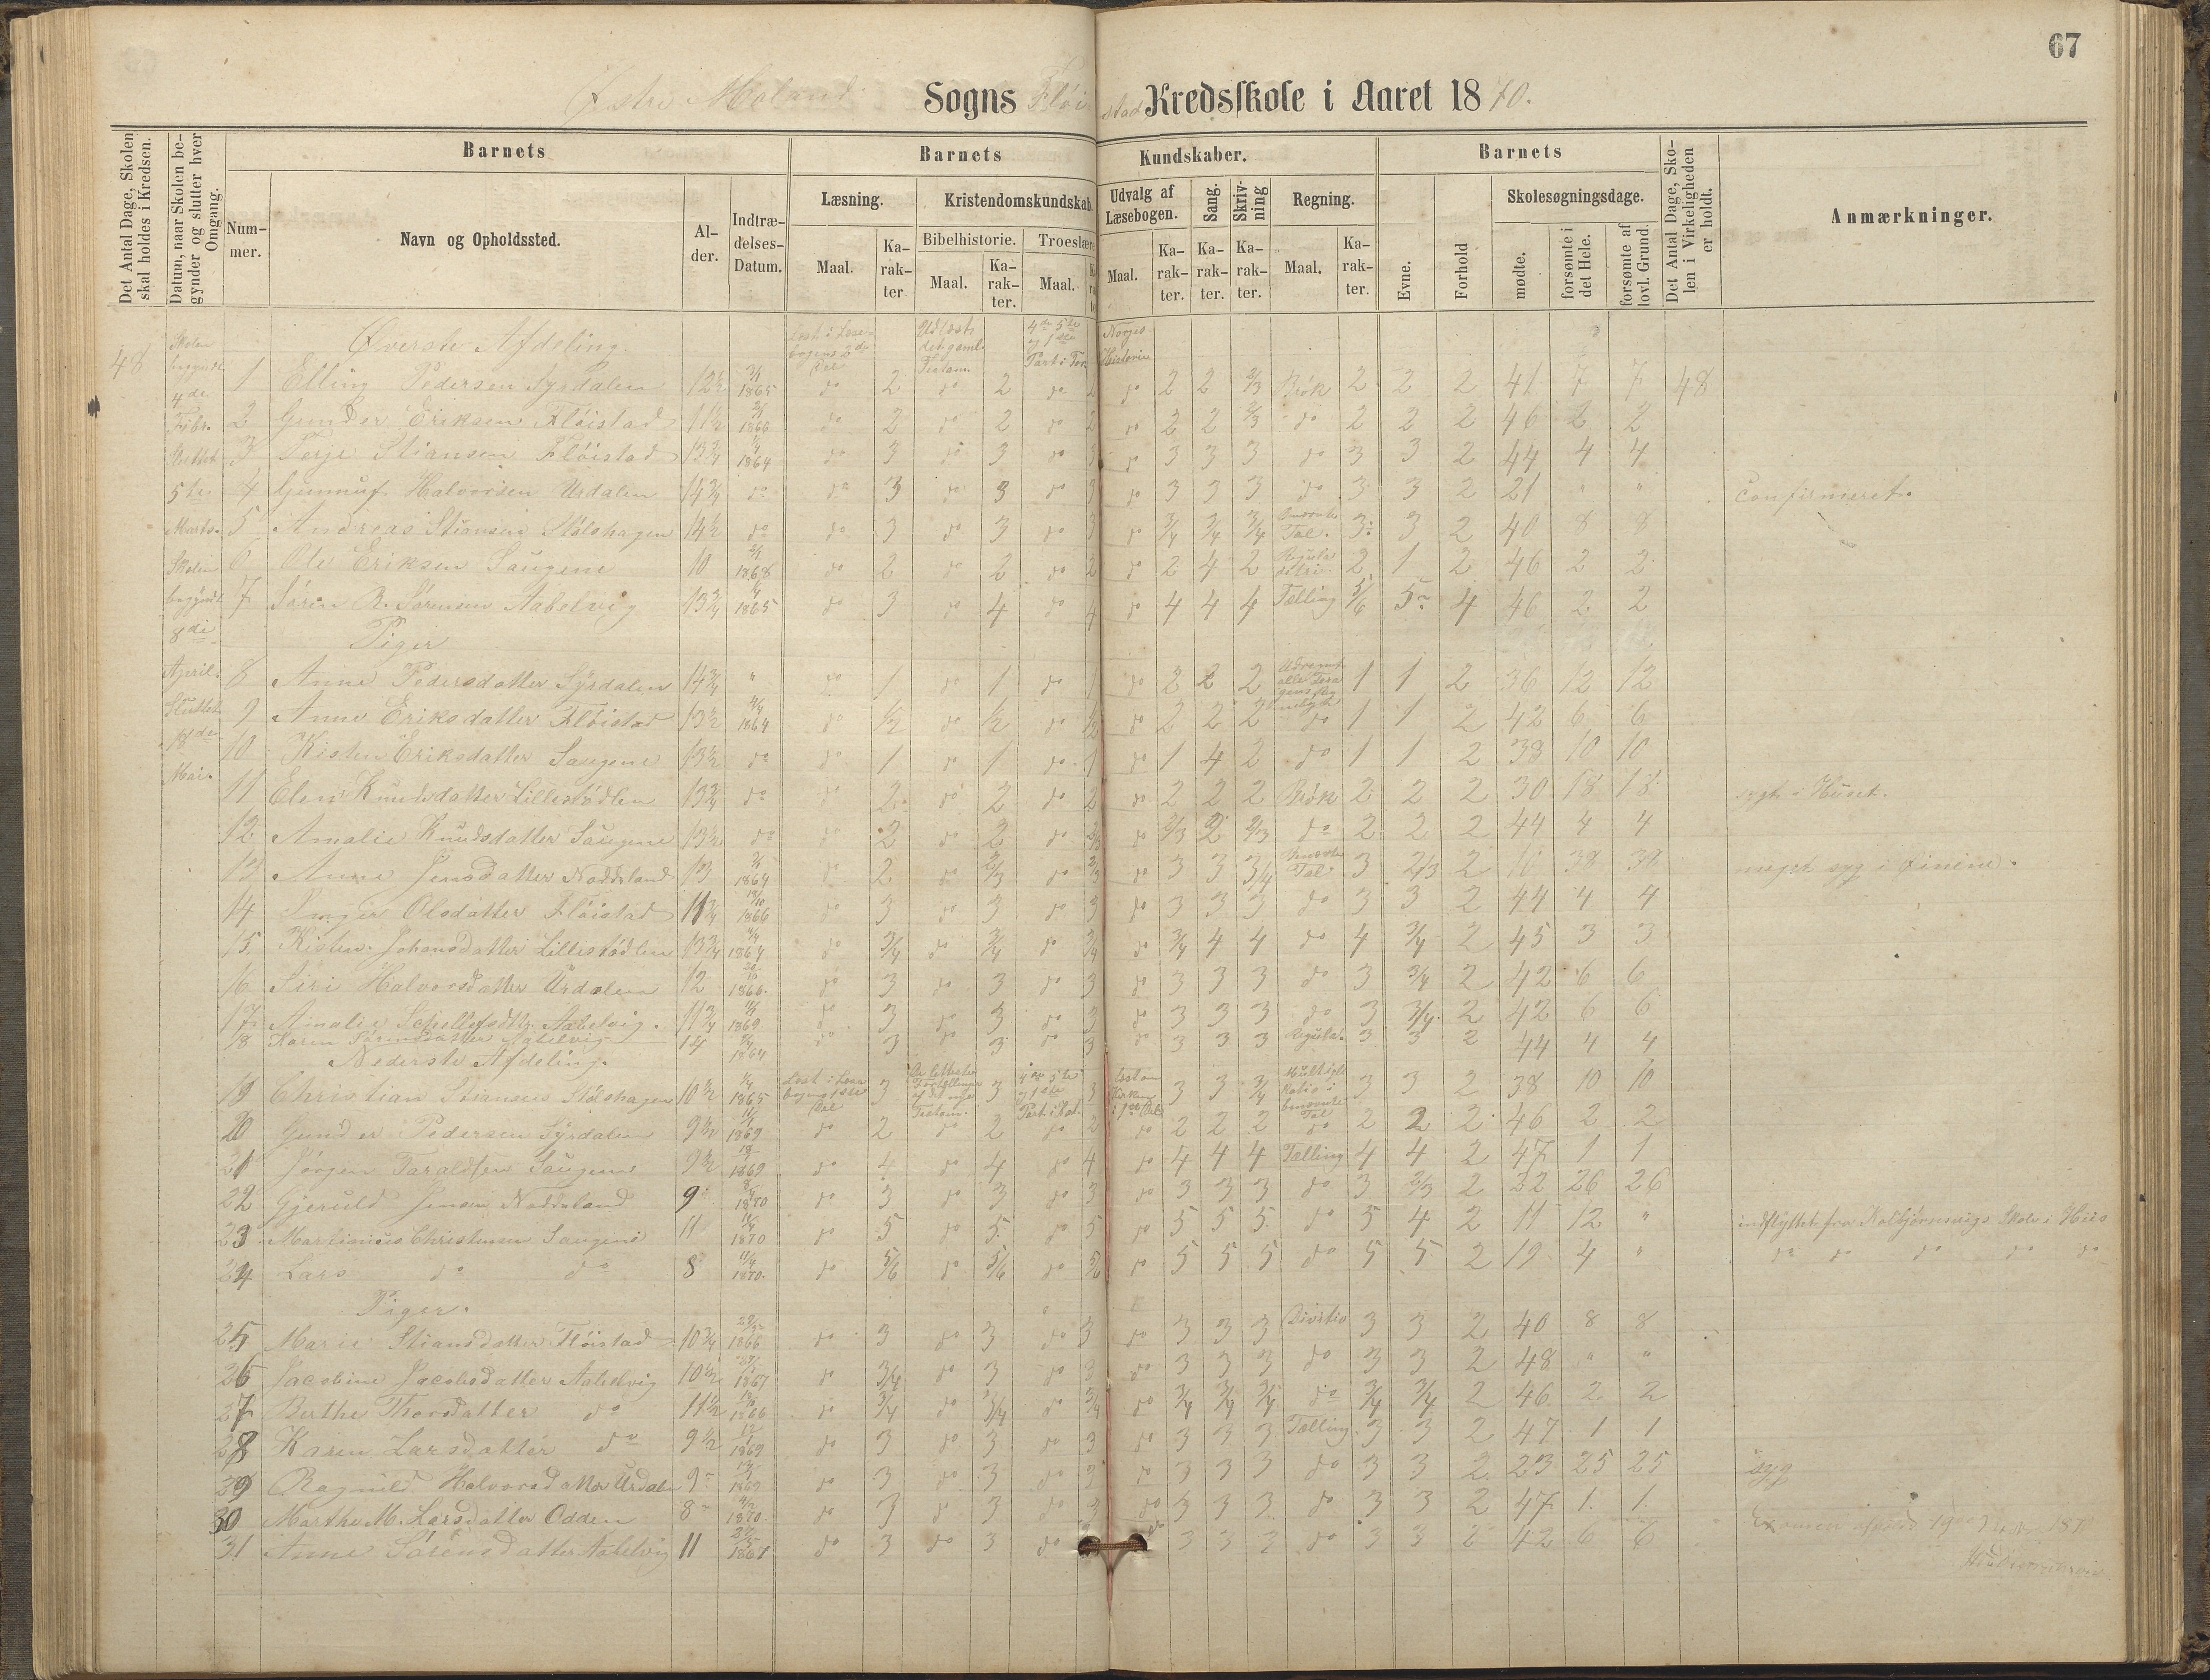 67
Østre Moland Sogns Fløistad Kredsskole i Aaret 1870.
Det Antal Dage, Skolen skal holdes i Kredsen.
Datum, naar Skolen begynder og slutter hver Omgang.
Barnets
Nummer.
Navn og Opholdssted.
Alder.
Indtrædelses-Datum.
Barnets Kundskaber.
Læsning.
Maal.
Karakter
Kristendomskundskab.
Bibelhistorie.
Maal.
Karakter.
Troeslære
Maal.
Udvalg af Læsebogen.
Maal.
Karakter.
Sang.
Karakter.
Skrivning
Karakter.
Regning.
Maal.
Karakter.
Barnets
Evne.
Forhold
Skolesøgningsdage.
mødte.
forsømte i det Hele.
forsømte af lovl. Grund.
Det Antal Dage, Skolen i Virkeligheden er holdt.
Anmærkninger.
48
Skolen begyndt 4de Febr. Sluttet 5te Marts. Skolen begyndt 8di April. Sluttet 18de Mai.
Øverste Afdeling.
Norges Historie
1 Elling Pedersen Syrdalen 12½ 1865 do 2 do 2 do 2 do 2 2 2/3 Brøk 2 2 2 41 7 7 48
2 Gunder Eriksen Fløistad 11½ 1866 do 2 do 2 do 2 do 2 2 2/3 do 2 2 2 46 2 2
3 Terje Stiansen Fløistad 13¾ 1864 do 3 do 3 do 3 do 3 3 3 do 3 3 2 44 4 4
4 Gunnuf Halvorsen Urdalen 14¾ do do 3 do 3 do 3 do 3 3 3 do 3 3 2 21 " " Confirmeret.
5 Andreas Stiansen Stølshagen 14½ do do 3 do 3 do 3 do 3/4 3/4 3/4 Tal. 3 3 2 40 8 8
6 Ole Eriksen Saugene 10 1868 do 2 do 2 do 2 do 2 4 2 Regula detri 2 1 2 46 2 2
7 Søren R. Sørensen Aabelvig 13¾ 1865 do 3 do 4 do 4 do 4 4 4 Tælling 5/6 5 4 46 2 2
Piger
8 Anne Pedersdatter Syrdalen 14¾ " do 1 do 1 do 1 do 2 2 2 1 1 2 36 12 12
9 Anne Eriksdatter Fløistad 13½ 1864 do 1/2 do 1/2 do 1/2 do 2 2 2 do 1 1 2 42 6 6
10 Kisten Eriksdatter Saugene 13½ do do 1 do 1 do 1 do 1 4 2 do 1 1 2 38 10 10
11 Elen Knudsdatter Lillestødlen 13¾ do do 2 do 2 do 2 do 2 2 2 Brøk 2 2 2 30 18 18 sygt i Huset.
12 Amalie Knudsdatter Saugene 13½ do do 2 do 2 do do 2/3 2 2/3 do 2 2 2 44 4 4
13 Anne Jensdatter Noddeland 13 1864 do 2 do 2/3 do 2/3 do 3 3 3/4 Tal. 3 2/3 2 10 38 38 meget syg i
14 Inger Olsdatter Fløistad 11¾ 1866 do 3 do 3 do 3 do 3 3 3 do 3 3 2 44 4 4
15 Kisten Johansdatter Lillestødlen 13¾ 1864 do 3/4 do 3/4 do 3/4 do 3/4 4 4 do 4 3/4 2 45 3 3
16 Siri Halvorsdatter Urdalen 12 1866. do 3 do 3 do 3 do 3 3 3 do 3 3/4 2 42 6 6
17 Amalie Aabelvig. 11¾ 1869 do 3 do 3 do 3 do 3 3 3 do 3 3/4 2 42 6 6
18 Karen Sørensdatter Aabelvig 14 1864 do 3 do 3 do 3 do 3 3 3 Regula. 3 3 2 44 4 4
Nederste Afdeling.
19 Christian Stiansen Stølshagen 10½ 1865 3 3 3 3 3 3/4 3 3 2 38 10 10
20 Gunder Pedersen Syrdalen 9½ 1869 do 2 do 2 do 2 do 2 2 2 do 2 2 2 46 2 2
21 Jørgen Taraldsen Saugene 9½ 1869 do 4 do 4 do 4 do 4 4 4 Tælling 4 4 2 47 1 1
22 Gjeruld Jensen Noddeland 9 1870 do 3 do 3 do 3 do 3 3 3 do 3 2/3 2 22 26 26
23 Martinius Christensen Saugene 11 1870 do 5 do 5 do 5 do 5 5 5 do 5 4 2 11 12 " indflyttet fra Kolbjørnsvigs Skole i Hiis
24 Lars do do 8 1870. do 5/6 do 5/6 do 5/6 do 5 5 5 do 5 5 2 19 4 " do do do do do
Piger.
25 Marie Stiansdatter Fløistad 10¾ 1866 do 3 do 3 do 3 do 3 3 3 Divitio 3 3 2 40 8 8
26 Jacobine Jacobsdatter Aabelvig 10½ 1867 do 3/4 do 3 do 3 do 3 3 3 do 3 3 2 48 " "
27 Berthe Thorsdatter do 11½ 1866 do 3/4 do 3/4 do 3/4 do 3/4 3/4 3/4 do 3/4 3/4 2 46 2 2
28 Karen Larsdatter do 9½ 1869 do 3 do 3 do 3 do 3 3 3 Tælling 3 3 2 47 1 1
29 Ragnild Halvorsdatter Urdalen 9 1869 do 3 do 3 do 3 do 3 3 3 do 3 3 2 23 25 25 syg
30 Marthe M. Larsdatter Odden 8 1870. do 3 do 3 do 3 do 3 3 3 do 3 3 2 47 1. 1.
31 Anne Sørensdatter Aabelvig 11 1867 do 3 do 3 do do 3 3 3 do 3 3 2 42 6 6